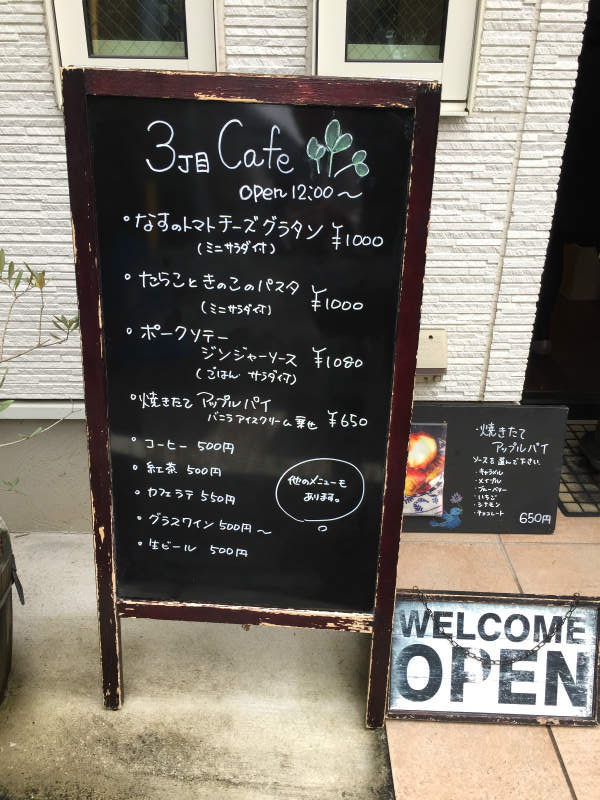 3丁目 Cafe
open 12:00〜
・なすのトマトチーズグラタン ¥1000
(ミニサラダ付)
・たらこときのこのパスタ ¥1000
(ミニサラダ付)
・ポークソテー
ジンジャーソース ¥1080
(ごはん サラダ付)
・焼きたて アップルパイ
バニラアイスクリーム乗せ ¥650
・コーヒー 500円
・紅茶 500円
・カフェラテ 550円
・グラスワイン 500円〜
・生ビール 500円
他のメニューも
あります。
・焼きたて
アップルパイ
ソースを選んで下さい。
・キャラメル
・メイプル
・ブルーベリー
・いちご
・シナモン
・チョコレート
650円
WELCOME
OPEN